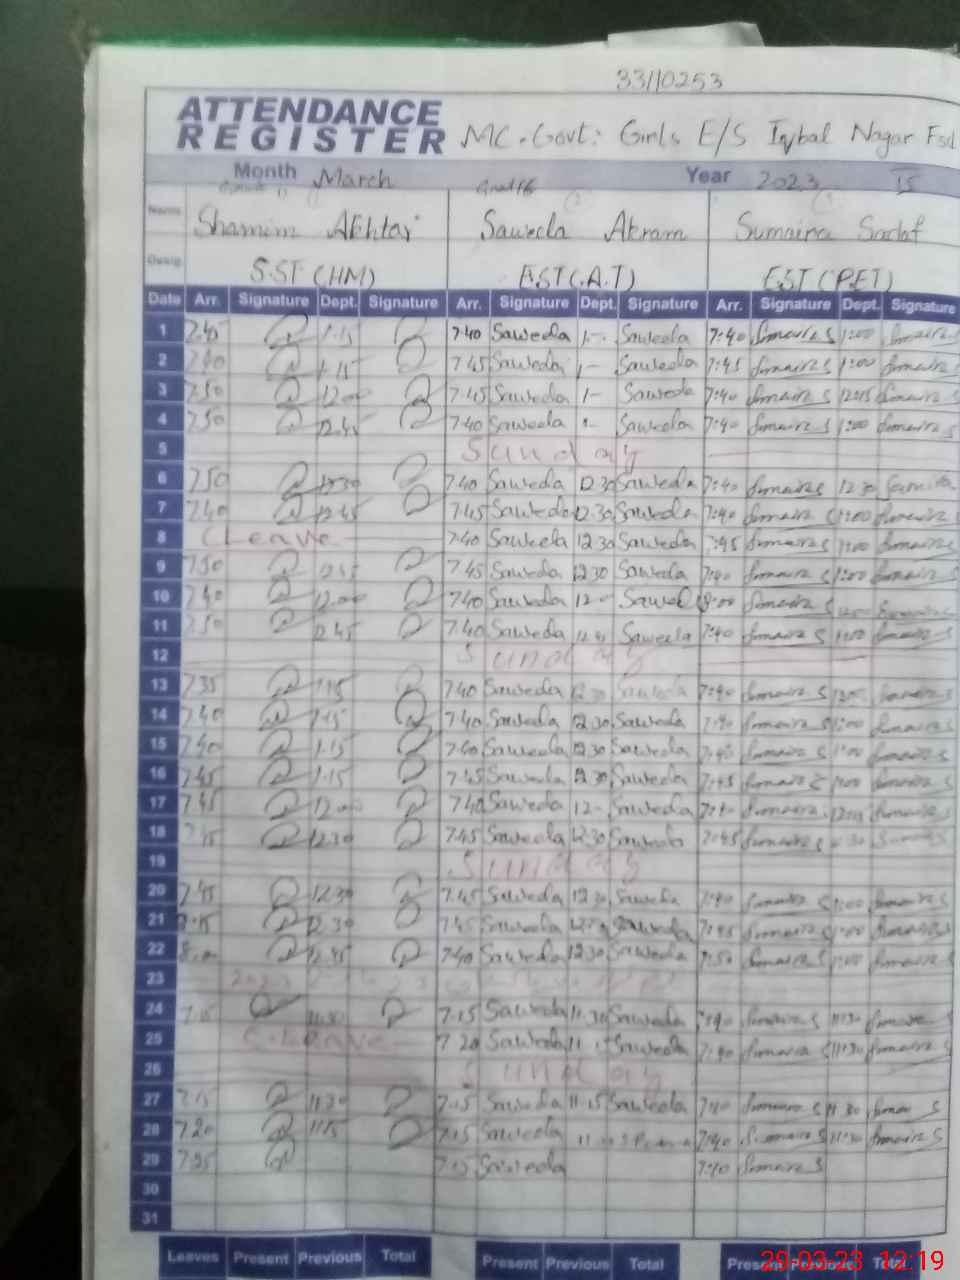 33110253
ATTENDANCE
REGISTER MC. Govt: Girls E/S Iqbal Nagar Fsd
Month March Year 2023 15
Name Shamim Akhtar Saweda Akram Sumaira Sadaf
Desig. S.ST (HM) EST(A.T) EST (PET)
Date Arr. Signature Dept. Signature Arr. Signature Dept. Signature Arr. Signature Dept. Signature
1 7.45 1.15 7.40 Saweda 1- Saweda 7:40 Sumaira S 1:00 Sumaira S
2 7.40 1.15 7.45 Saweda 1- Saweda 7:45 Sumaira S 1:00 Sumaira S
3 7.50 12.00 7.45 Saweda 1- Saweda 7:40 Sumaira S 12:15 Sumaira S
4 7.50 12.45 7.40 Saweda Saweda 7:40 Sumaira S 1:00 Sumaira S
5 Sunday
6 7.50 12.30 7.40 Saweda 12.30 Saweda 7:40 Sumaira S 12.30
7 7.40 12.45 7.45 Saweda 12.30 Saweda 7:40 Sumaira S 1:00 Sumaira S
8 C Leave 7.40 Saweda 12.30 Saweda 7:45 Sumaira S 1:00 Sumaira S
9 7.50 12.45 7.45 Saweda 12.30 Saweda 7:40 Sumaira S 1:00 Sumaira S
10 7.40 12.00 7.40 Saweda 12- 8:00 Sumaira S Sumaira S
11 7.50 12.45 7.40 Saweda Saweda 7:40 Sumaira S 1:00 Sumaira S
12 Sunday
13 7.35 1.15 7.40 Saweda 12.30 Saweda 7:40 Sumaira S Sumaira S
14 7.40 1.15 7.40 Saweda 12.30 Saweda 7:40 Sumaira S 1:00 Sumaira S
15 7.40 1.15 7.40 Saweda 12.30 Saweda 7:40 Sumaira S 1:00 Sumaira S
16 7.45 1.15 7.45 Saweda 12.30 Saweda 7:45 Sumaira S 1:00 Sumaira S
17 7.45 12.00 7.40 Saweda 12- Saweda Sumaira S Sumaira S
18 12.30 7.45 Saweda 12.30 Saweda 7:45 Sumaira S Sumaira S
19 Sunday
20 7.45 12.30 7.45 Saweda 12.30 Saweda 7:40 Sumaira S 1:00 Sumaira S
21 8.15 12.30 7.45 Saweda Saweda 7:45 Sumaira S 1:00 Sumaira S
22 8.00 12.45 7.40 Saweda 12.30 Saweda 7:50 Sumaira S 1:00 Sumaira S
23
24 7.15 11.30 7.15 Saweda 11.30 Saweda 7:40 Sumaira S 11:30 Sumaira S
25 C. Leave 7.20 Saweda Saweda 7:40 Sumaira S 11:30 Sumaira S
26 Sunday
27 7.15 11.30 7.15 Saweda 11.15 Saweda 7:40 Sumaira S 11.30 S
28 7.20 11.15 7.15 Saweda 7:40 Sumaira S 11:30 Sumaira S
29 7.25 7.15 Saweda 7:40 Sumaira S
30
31
Leaves Present Previous Total Present Previous Total Present Previous Total
29-03-23 12:19